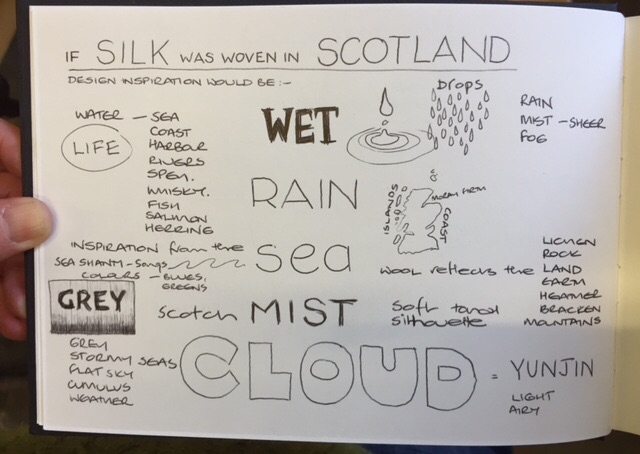 IF SILK WAS WOVEN IN SCOTLAND
DESIGN INSPIRATION WOULD BE:-
WATER - SEA
LIFE
COAST
HARBOUR
RIVERS
SPEY.
WHISKY.
FISH
SALMON
HERRING
WET
DROPS
RAIN
MIST - SHEER
FOG
RAIN
ISLANDS
MORAY FIRTH
COAST
INSPIRATION from the sea
SEA SHANTY - Songs
COLOURS - BLUES,
GREENS
wool reflects the LAND
LICHEN
ROCK
EARTH
HEATHER
BRACKEN
MOUNTAINS
GREY
Scotch MIST
Soft tonal
Silhouette
GREY
STORMY SEAS
FLAT SKY
CUMULUS
WEATHER
CLOUD = YUNJIN
LIGHT
AIRY